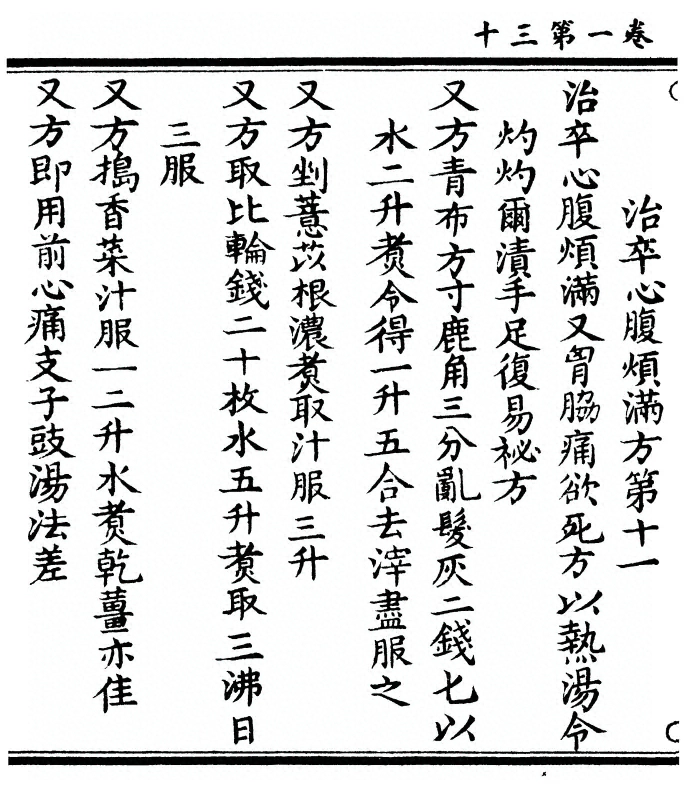 卷一第三十
治卒心腹煩滿方第十一
治卒心腹煩滿又胷脇痛欲死方以熱湯令
灼灼爾漬手足復易祕方
又方青布方寸鹿角三分亂髮灰二錢匕以
水二升煑令得一升五合去滓盡服之
又方剉薏苡根濃煑取汁服三升
又方取比輪錢二十枚水五升煑取三沸日
三服
又方搗香菜汁服一二升水煑乾薑亦佳
又方即用前心痛支子豉湯法差